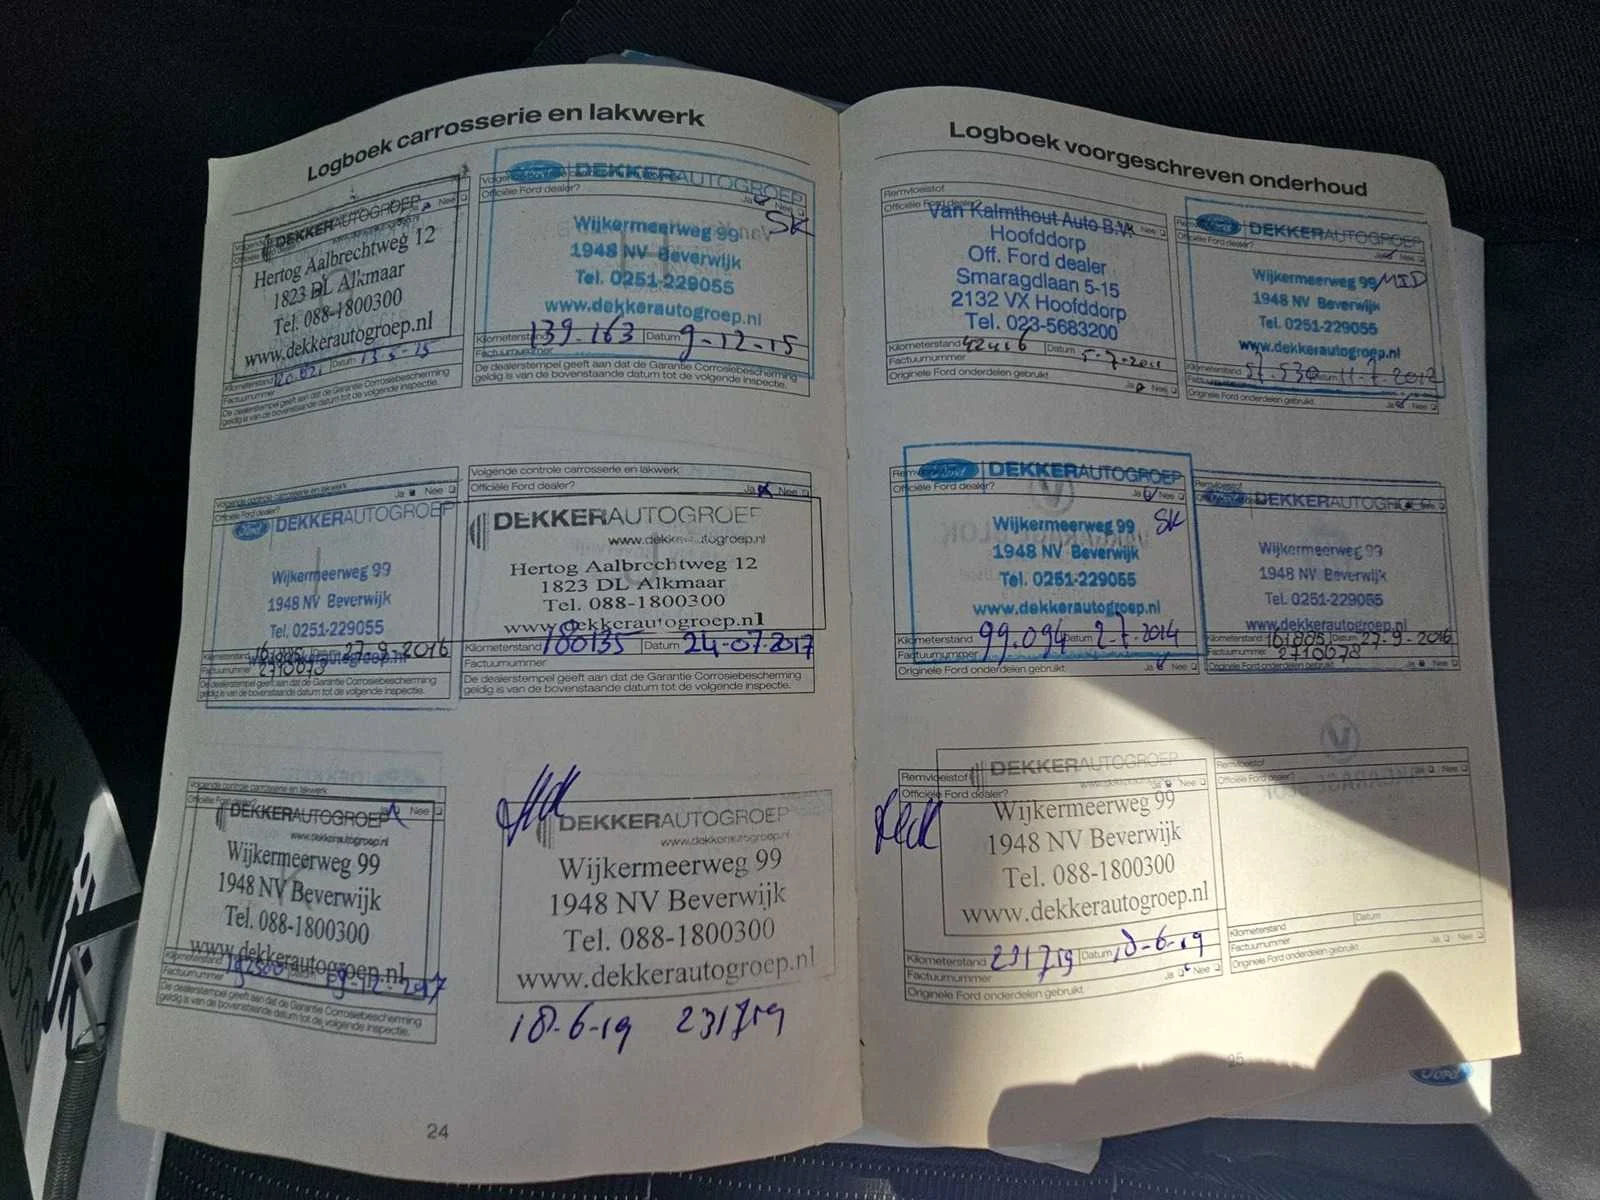 Logboek carrosserie en lakwerk
DEKKERAUTOGROEP
Hertog Aalbrechtweg 12
1823 DL Alkmaar
Tel. 088-1800300
www.dekkerautogroep.nl
Kilometerstand
Datum 13-5-15
Factuurnummer
De dealerstempel geeft aan dat de Garantie Corrosiebescherming
geldig is van de bovenstaande datum tot de volgende inspectie.
Ford DEKKERAUTOGROEP
Officiële Ford dealer?
Ja Nee
SK
Wijkermeerweg 99
1948 NV Beverwijk
Tel. 0251-229055
www.dekkerautogroep.nl
Kilometerstand 139.163 Datum 9-12-15
Factuurnummer
De dealerstempel geeft aan dat de Garantie Corrosiebescherming
geldig is van de bovenstaande datum tot de volgende inspectie.
Volgende controle carrosserie en lakwerk
Officiële Ford dealer? Ja Nee
Ford DEKKERAUTOGROEP
Wijkermeerweg 99
1948 NV Beverwijk
Tel. 0251-229055
www.dekkerautogroep.nl
161885 27-9-2016
Factuurnummer 2710678
De dealerstempel geeft aan dat de Garantie Corrosiebescherming
geldig is van de bovenstaande datum tot de volgende inspectie.
Volgende controle carrosserie en lakwerk
Officiële Ford dealer? Ja Nee
DEKKERAUTOGROEP
www.dekkerautogroep.nl
Hertog Aalbrechtweg 12
1823 DL Alkmaar
Tel. 088-1800300
www.dekkerautogroep.nl
Kilometerstand 180135 Datum 24-07-2017
Factuurnummer
De dealerstempel geeft aan dat de Garantie Corrosiebescherming
geldig is van de bovenstaande datum tot de volgende inspectie.
Volgende controle carrosserie en lakwerk
Officiële Ford dealer? Ja Nee
DEKKERAUTOGROEP
www.dekkerautogroep.nl
Wijkermeerweg 99
1948 NV Beverwijk
Tel. 088-1800300
www.dekkerautogroep.nl
Kilometerstand
Factuurnummer
De dealerstempel geeft aan dat de Garantie Corrosiebescherming
geldig is van de bovenstaande datum tot de volgende inspectie.
DEKKERAUTOGROEP
www.dekkerautogroep.nl
Wijkermeerweg 99
1948 NV Beverwijk
Tel. 088-1800300
www.dekkerautogroep.nl
18-6-19 231719
24
Logboek voorgeschreven onderhoud
Remvloeistof
Officiële Ford dealer? Ja Nee
Van Kalmthout Auto B.V.
Hoofddorp
Off. Ford dealer
Smaragdlaan 5-15
2132 VX Hoofddorp
Tel. 023-5683200
Kilometerstand 42416 Datum 5-7-2011
Factuurnummer
Originele Ford onderdelen gebruikt Ja Nee
Ford DEKKERAUTOGROEP
Officiële Ford dealer? Ja Nee
Wijkermeerweg 99
1948 NV Beverwijk
Tel. 0251-229055
www.dekkerautogroep.nl
Kilometerstand Datum 11-7-2012
Factuurnummer
Originele Ford onderdelen gebruikt Ja Nee
Ford DEKKERAUTOGROEP
Officiële Ford dealer? Ja Nee
SK
Wijkermeerweg 99
1948 NV Beverwijk
Tel. 0251-229055
www.dekkerautogroep.nl
Kilometerstand 99.094 Datum 2-7-2014
Factuurnummer
Originele Ford onderdelen gebruikt Ja Nee
Remvloeistof
DEKKERAUTOGROEP
Wijkermeerweg 99
1948 NV Beverwijk
Tel. 0251-229055
www.dekkerautogroep.nl
Kilometerstand 161885 Datum 27-9-2016
Factuurnummer 2710678
Originele Ford onderdelen gebruikt Ja Nee
Remvloeistof
DEKKERAUTOGROEP
Officiële Ford dealer? Ja Nee
Wijkermeerweg 99
1948 NV Beverwijk
Tel. 088-1800300
www.dekkerautogroep.nl
Kilometerstand 231719 Datum 18-6-19
Factuurnummer
Originele Ford onderdelen gebruikt Ja Nee
Remvloeistof
Officiële Ford dealer? Ja Nee
Kilometerstand Datum
Factuurnummer
Originele Ford onderdelen gebruikt Ja Nee
25
Ford